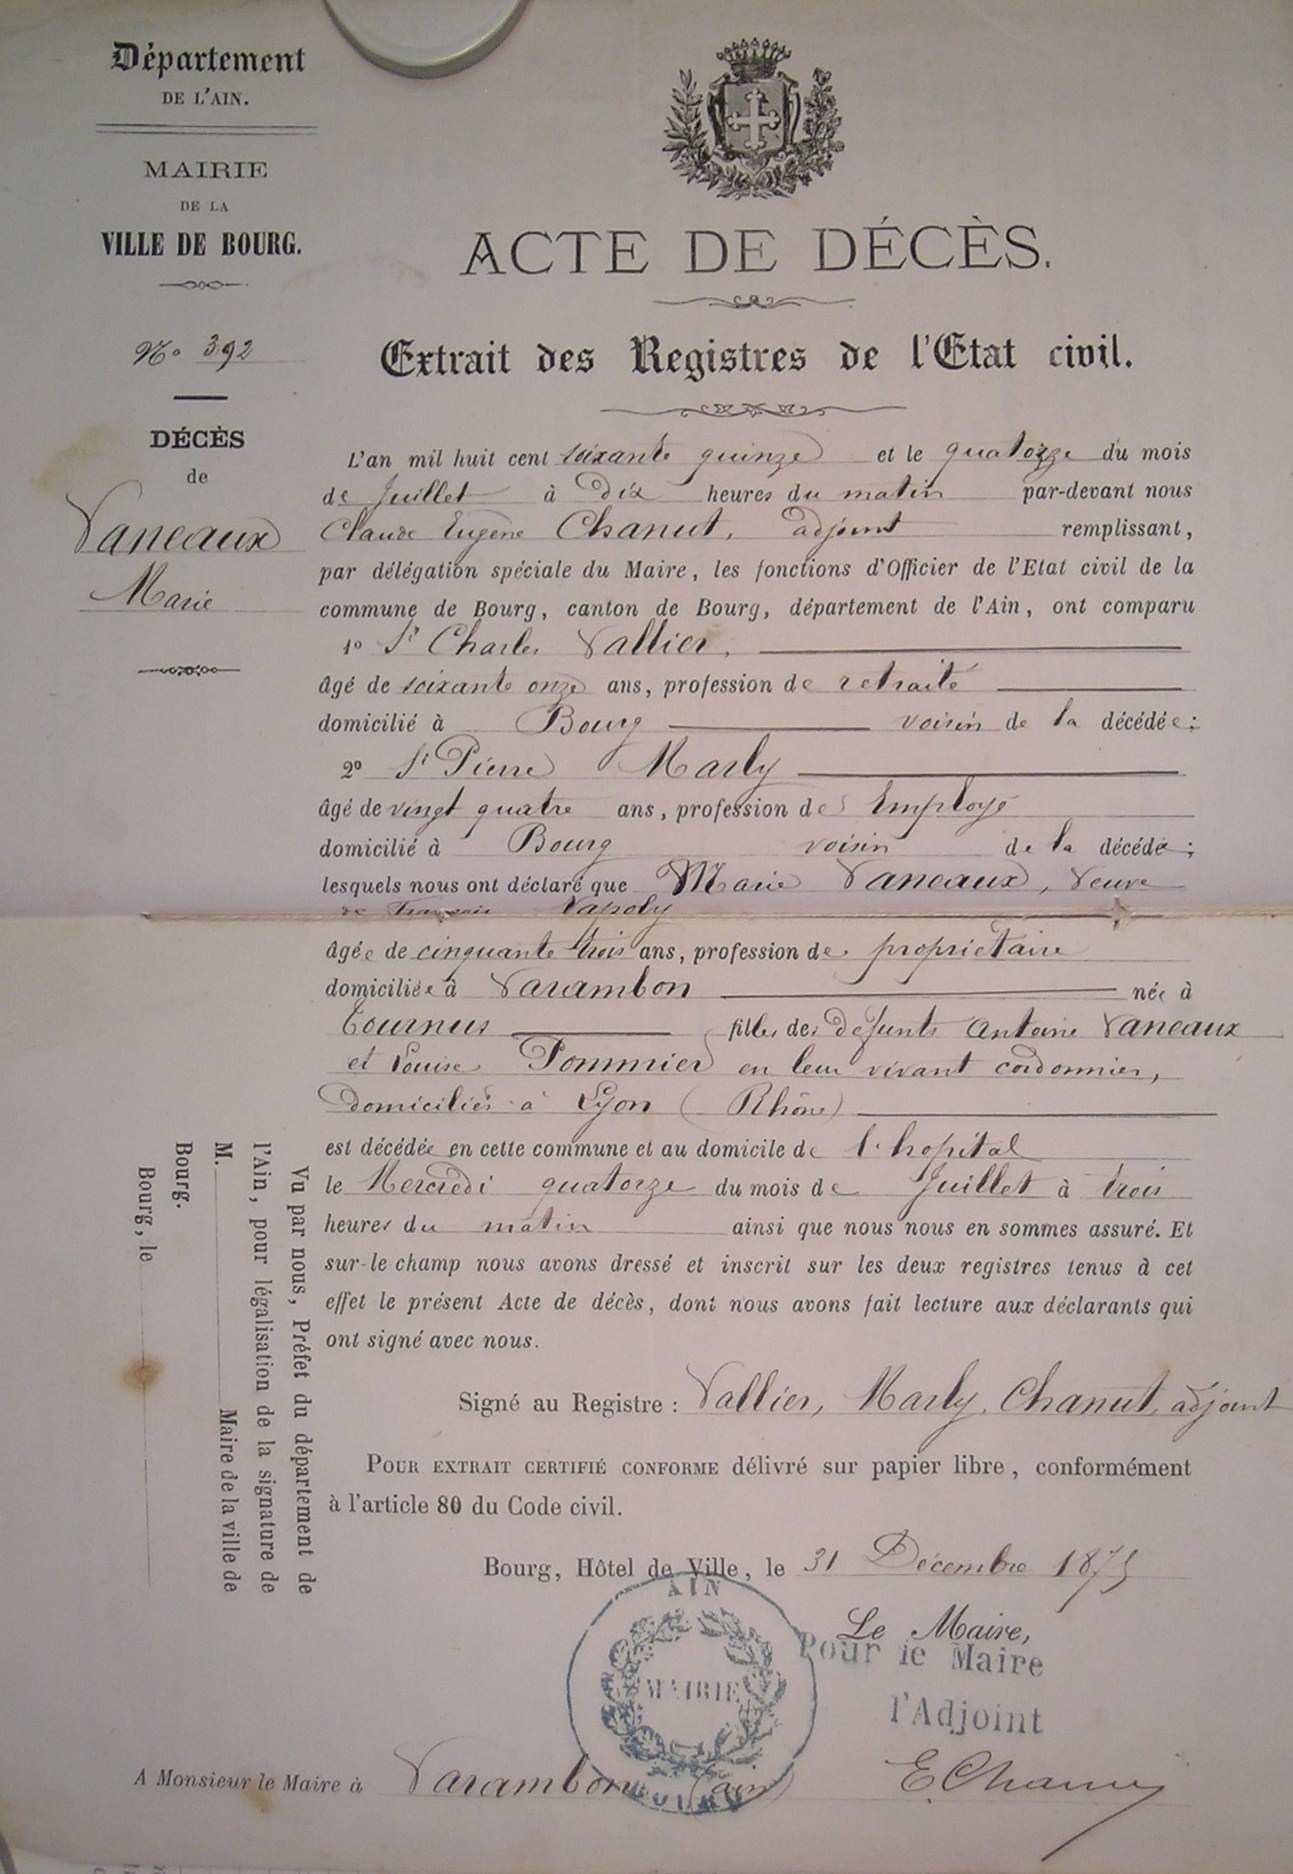 Département
DE L'AIN.
MAIRIE
DE LA
VILLE DE BOURG.
No 392
DÉCÈS
de
Vaneaux
Marie
ACTE DE DÉCÈS.
Extrait des Registres de l'Etat civil.
L'an mil huit cent soixante quinze et le quatorze du mois
de Juillet à Dix heures du matin par-devant nous
Claude Eugène Chanut, adjoint remplissant,
par délégation spéciale du Maire, les fonctions d'Officier de l'Etat civil de la
commune de Bourg, canton de Bourg, département de l'Ain, ont comparu
1o Sr Charles Vallier,
âgé de soixante onze ans, profession de retraité
domicilié à Bourg voisin de la décédée;
2o Sr Pierre Marly
âgé de vingt quatre ans, profession de Employé
domicilié à Bourg voisin de la décédé;
lesquels nous ont déclaré que Marie Vaneaux, Veuve
de François Vapoly
âgée de cinquante trois ans, profession de propriétaire
domiciliée à Varambon née à
Tournus fille des défunts Antoine Vaneaux
et Louise Pommier en leur vivant cordonnier,
Domiciliés à Lyon (Rhône)
est décédée en cette commune et au domicile de l'hopital
le Mercredi quatorze du mois de Juillet à trois
heures du matin ainsi que nous nous en sommes assuré. Et
sur-le champ nous avons dressé et inscrit sur les deux registres tenus à cet
effet le présent Acte de décès, dont nous avons fait lecture aux déclarants qui
ont signé avec nous.
Signé au Registre : Vallier, Marly, Chanut, adjoint
POUR EXTRAIT CERTIFIÉ CONFORME délivré sur papier libre, conformément
à l'article 80 du Code civil.
Bourg, Hôtel de Ville, le 31 Décembre 1875
Le Maire,
Pour le Maire
l'Adjoint
E. Chanut
AIN
MAIRIE
BOURG
A Monsieur le Maire à Varambon (ain)
Vu par nous, Préfet du département de
l'Ain, pour légalisation de la signature de
M. Maire de la ville de
Bourg.
Bourg, le